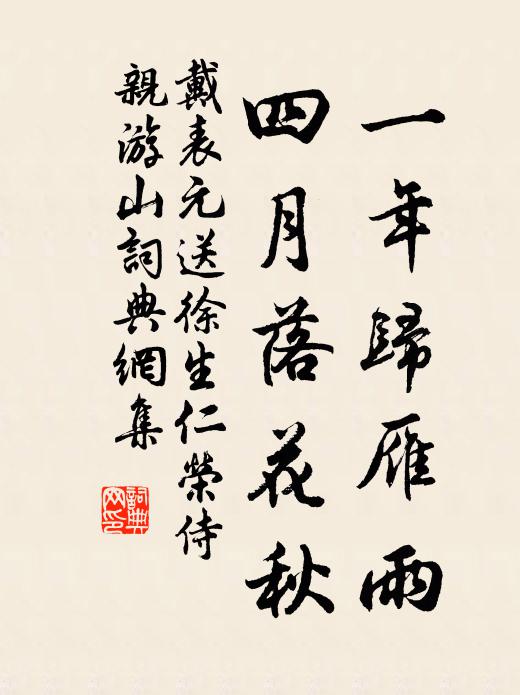 一年歸雁雨
四月落花秋
戴表元送徐生仁榮侍
親游山詞典網集
詞典网印